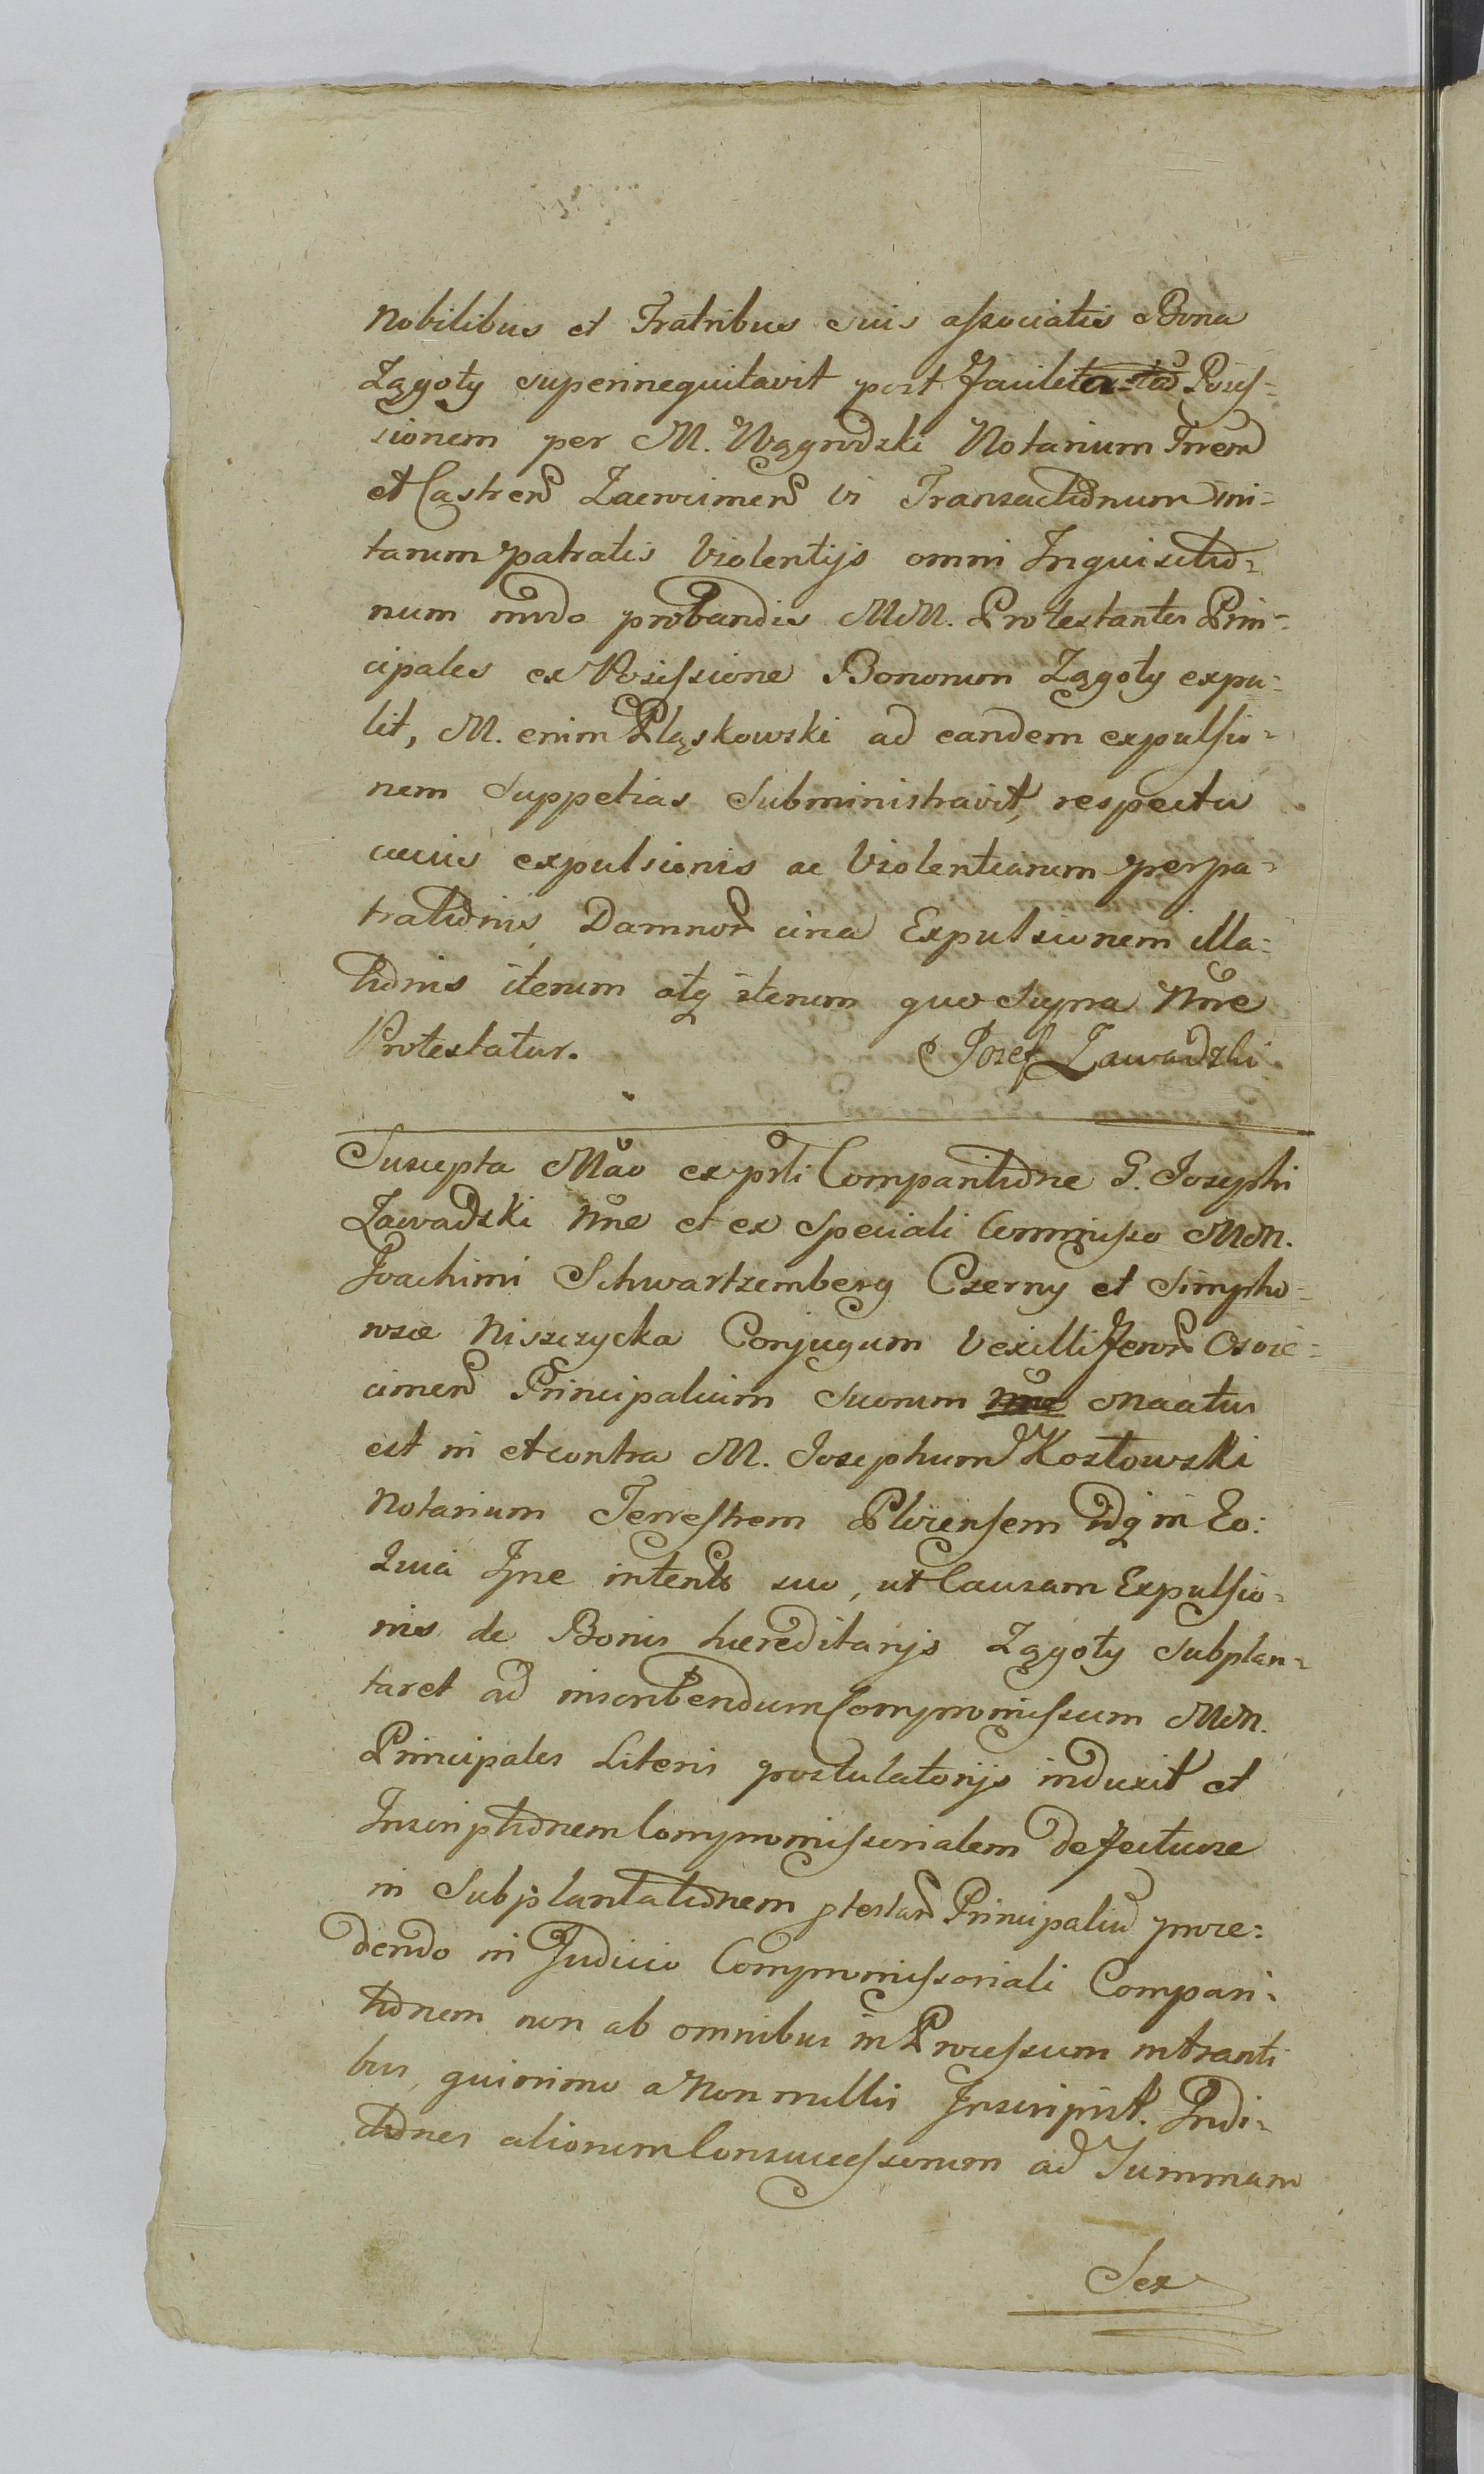 Nobilibus et Fratribus suis aſsociatis Bona
Zągoty superinequitavit post Posſes-
sionem per M. Wągrodzki Notarium Trrem
et Castren Zacrocimen vi Transactionum ini-
tarum patratis Violentijs omni Inquisitio-
num modo probandis MM. Protestantes Prin-
cipales ex Poseſsione Bonorum Zągoty expu-
lit, M. enim Pląskowski ad eandem expulſio-
nem Suppetias Subministravit, respectu
cuius expulsionis ac Violentiarum perpa-
trationis Damnor circa Expulsionem illa-
tionis iterum atq iterum quo Supra Nõie
Protestatur. Josef Zawadzki
Suscepta Mão ex prti Comparitione G. Josephi
Zawadzki Nõie et ex Speciali Commiſso MM.
Joachimi Schwartzemberg Czerny et Simpho-
rosae Niszczycka Conjugum Vexilliferor Oswie-
cimen Principalium Suorum Maatus
est in et contra M. Josephum Kozłowski
Notarium Terreſtrem Plocenſem idq in Eo:
Quia Ipe intento suo, ut Causam Expulſio-
nis de Bonis haereditarijs Zągoty Subplan-
taret ad inscribendum Compromiſsum MM.
Principales Literis postulatorijs induxit et
Inscriptionem Compromiſsorialem defectuose
in Subplantationem ptestan Principaliu proce-
dendo in Judicio Compromiſsoriali Compari-
tionem non ab omnibus in Proceſsum intranti
bus, quinimo a Non nullis Inscripsit. Indi-
ctiones aliorum Consucceſsorum ad Summam
Sex